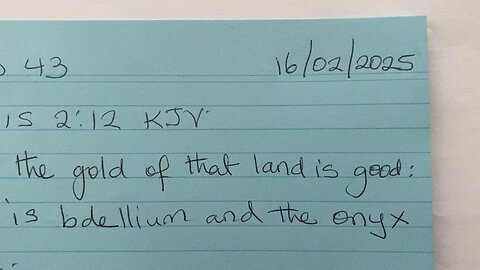 43 16/02/2025
is 2:12 KJV.
the gold of that land is good:
is bdellium and the onyx